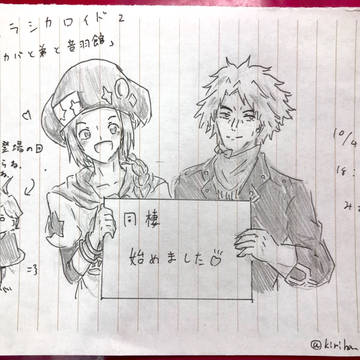 ラシカロイド2
カバと弟と音羽館」
登場の回
らね。
同棲
始めました♡
10/4
18:
@kiriha